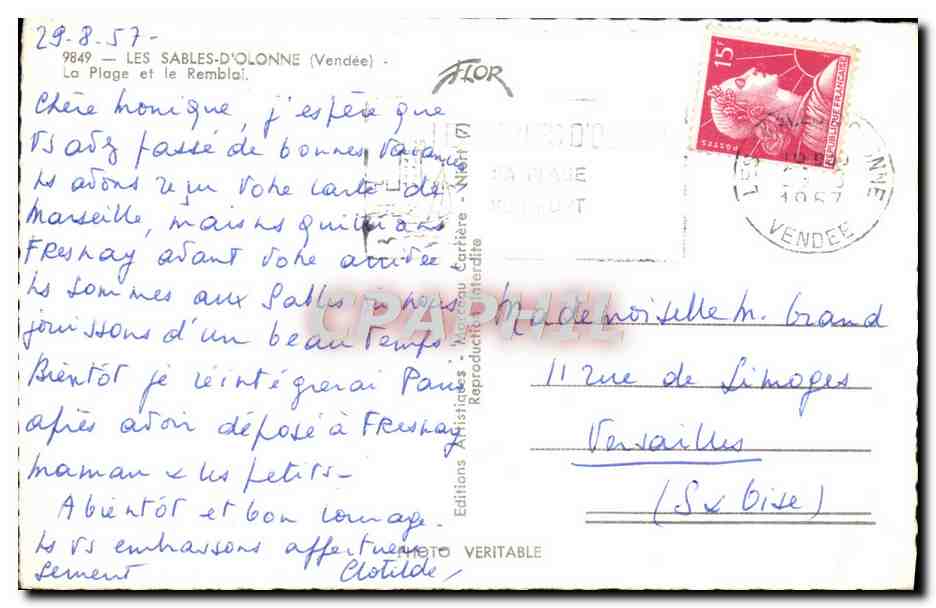 29-8-57-
9849 — LES SABLES-D'OLONNE (Vendée) -
La Plage et le Remblai.
Chère Monique, j'espère que
Vs avez passé de bonnes vacances
Ns avons reçu votre carte de
Marseille, mais ns quittions
FResnay avant votre arrivée.
Ns sommes aux Sables où nous
jouissons d'un beau temps.
Bientôt je réintégrerai Paris
après avoir déposé à FResnay
maman & les petits-
A bientôt et bon courage.
Ns vs embrassons affectueu-
sement Clotilde
FLOR
Editions Artistiques - Marceau Carrière - Niort (7)
Reproduction Interdite
PHOTO VERITABLE
SA PLAGE
15F
POSTES
REPUBLIQUE FRANÇAISE
1957
VENDEE
Mademoiselle M. Grand
11 rue de Limoges
Versailles
(S & Oise)
CPAPHIL